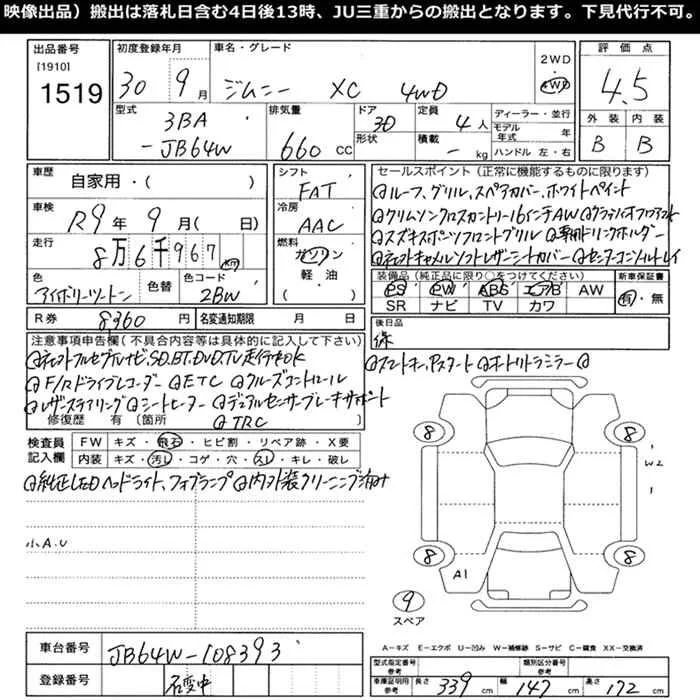 映像出品）搬出は落札日含む4日後13時、JU三重からの搬出となります。下見代行不可。
出品番号 [1910] 1519
初度登録年月 30 9月
車名・グレード ジムニー XC 4WD
2WD 4WD
評価点 4.5
外装 B 内装 B
型式 3BA -JB64W
排気量 660 CC
ドア 3D 形状
定員 4人
積載 - kg
ディーラー・並行
モデル年式 年
ハンドル 左・右
車歴 自家用・( )
シフト FAT
車検 R9年 9月( 日)
冷房 AAC
走行 8万6千967 km
燃料 ガソリン 軽油 ・( )
色 アイボリーツートン 色替
色コード 2BW
R券 8360円
名変通知期限 月 日
セールスポイント（正常に機能するものに限ります）
ルーフ、グリル、スペアカバー、ホワイトペイント
クリムソンクロスカントリー16インチAW
スズキスポーツフロントグリル 専用ドリンクホルダー
ネオキャメルソフトレザーシートカバー センターコンソールトレイ
装備品（純正品に限り○をつけてください）
PS PW ABS エアB AW
SR ナビ TV カワ
新車保証書 有・無
後日品 保
注意事項申告欄（不具合内容等は具体的に記入して下さい）
フルセグナビ、SD.BT.DVD.TV走行中OK
スマートキー、Pスタート オートリトラミラー
F/Rドライブレコーダー ETC クルーズコントロール
レザーステアリング シートヒーター デュアルセンサーブレーキサポート
修復歴 有（箇所 TRC
検査員記入欄
FW キズ・飛石・ヒビ割・リペア跡・X要
内装 キズ・汚レ・コゲ・穴・スレ・キレ・破レ
純正LEDヘッドライト、フォグランプ 内外装クリーニング済み
小A.U
8 8 8 8
W2
1
A1
9 スペア
A-キズ E-エクボ U-凹み W-補修跡 S-サビ C-腐食 XX-交換済
車台番号 JB64W-108393
登録番号 名変中
型式指定番号 参考
類別区分番号 参考
車庫証明用 参考 長さ 339 cm 幅 147 cm 高さ 172 cm